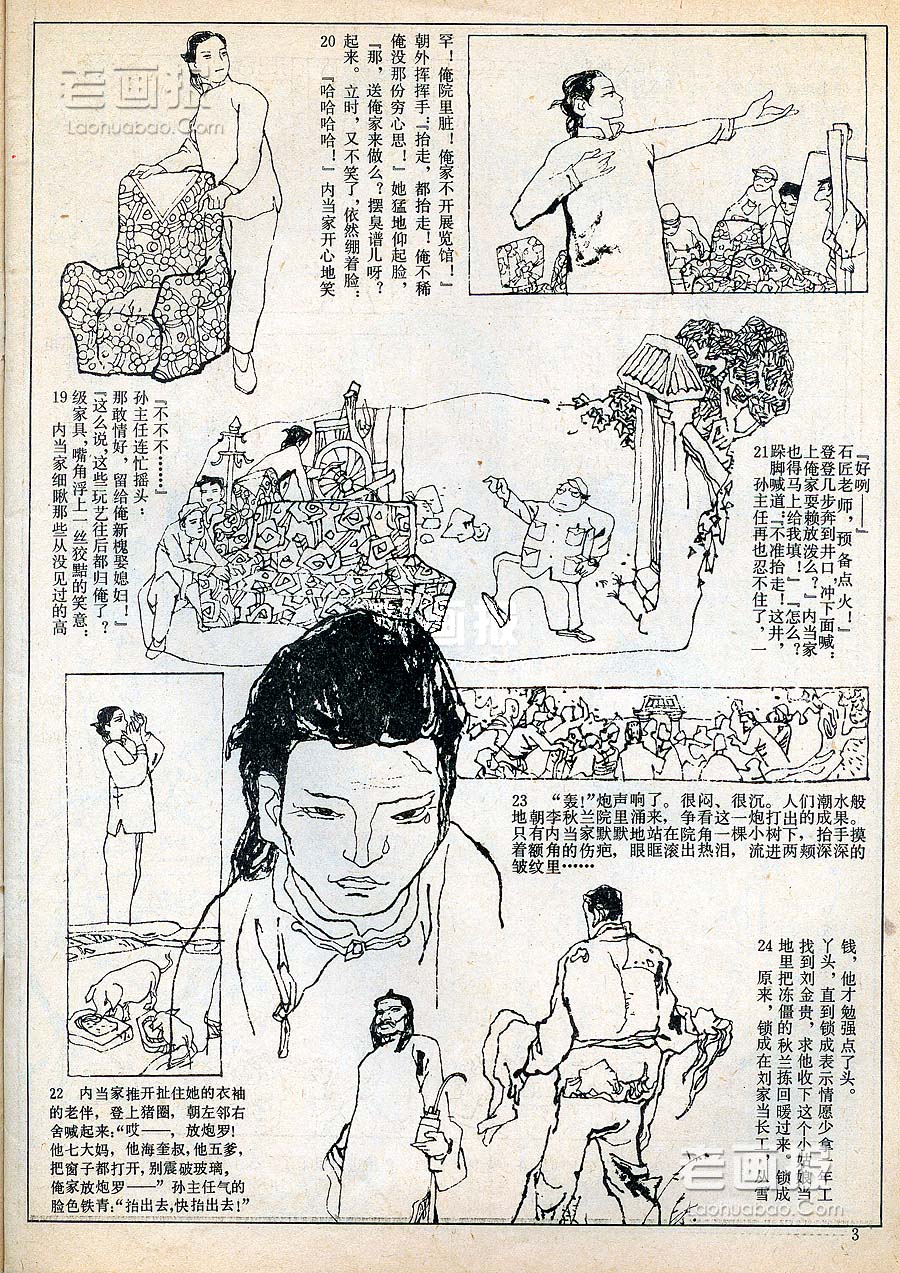 19 内当家细瞅那些从没见过的高
级家具,嘴角浮上一丝狡黠的笑意:
『这么说,这些玩艺往后都归俺了?
那敢情好,留给俺新槐娶媳妇!』
孙主任连忙摇头:
『不不不……』
20 『哈哈哈哈!』内当家开心地笑
起来。立时,又不笑了,依然绷着脸:
『那,送俺家来做么?摆臭谱儿呀?
俺没那份穷心思!』她猛地仰起脸,
朝外挥挥手:『抬走,都抬走!俺不稀
罕!俺院里脏!俺家不开展览馆!』
21 孙主任再也忍不住了,一
跺脚喊道:『不准抬走!这井,
也得马上给我填!』『怎么?
上俺家耍赖放泼么?』内当家
登登几步奔到井口,冲下面喊:
石匠老师,预备点火!』
『好咧——』
22 内当家推开扯住她的衣袖
的老伴,登上猪圈,朝左邻右
舍喊起来:“哎——,放炮罗!
他七大妈,他海奎叔,他五爹,
把窗子都打开,别震破玻璃,
俺家放炮罗——”孙主任气的
脸色铁青:“抬出去,快抬出去!”
23 “轰!”炮声响了。很闷、很沉。人们潮水般
地朝李秋兰院里涌来,争看这一炮打出的成果。
只有内当家默默地站在院角一棵小树下,抬手摸
着额角的伤疤,眼眶滚出热泪,流进两颊深深的
皱纹里……
24 原来,锁成在刘家当长工,从雪
地里把冻僵的秋兰拣回暖过来。锁成
找到刘金贵,求他收下这个小姑娘当
丫头,直到锁成表示情愿少拿一年工
钱,他才勉强点了头。
3
老画报
Laonuabao.Com
老画报
老画报
Laonuabao.Com